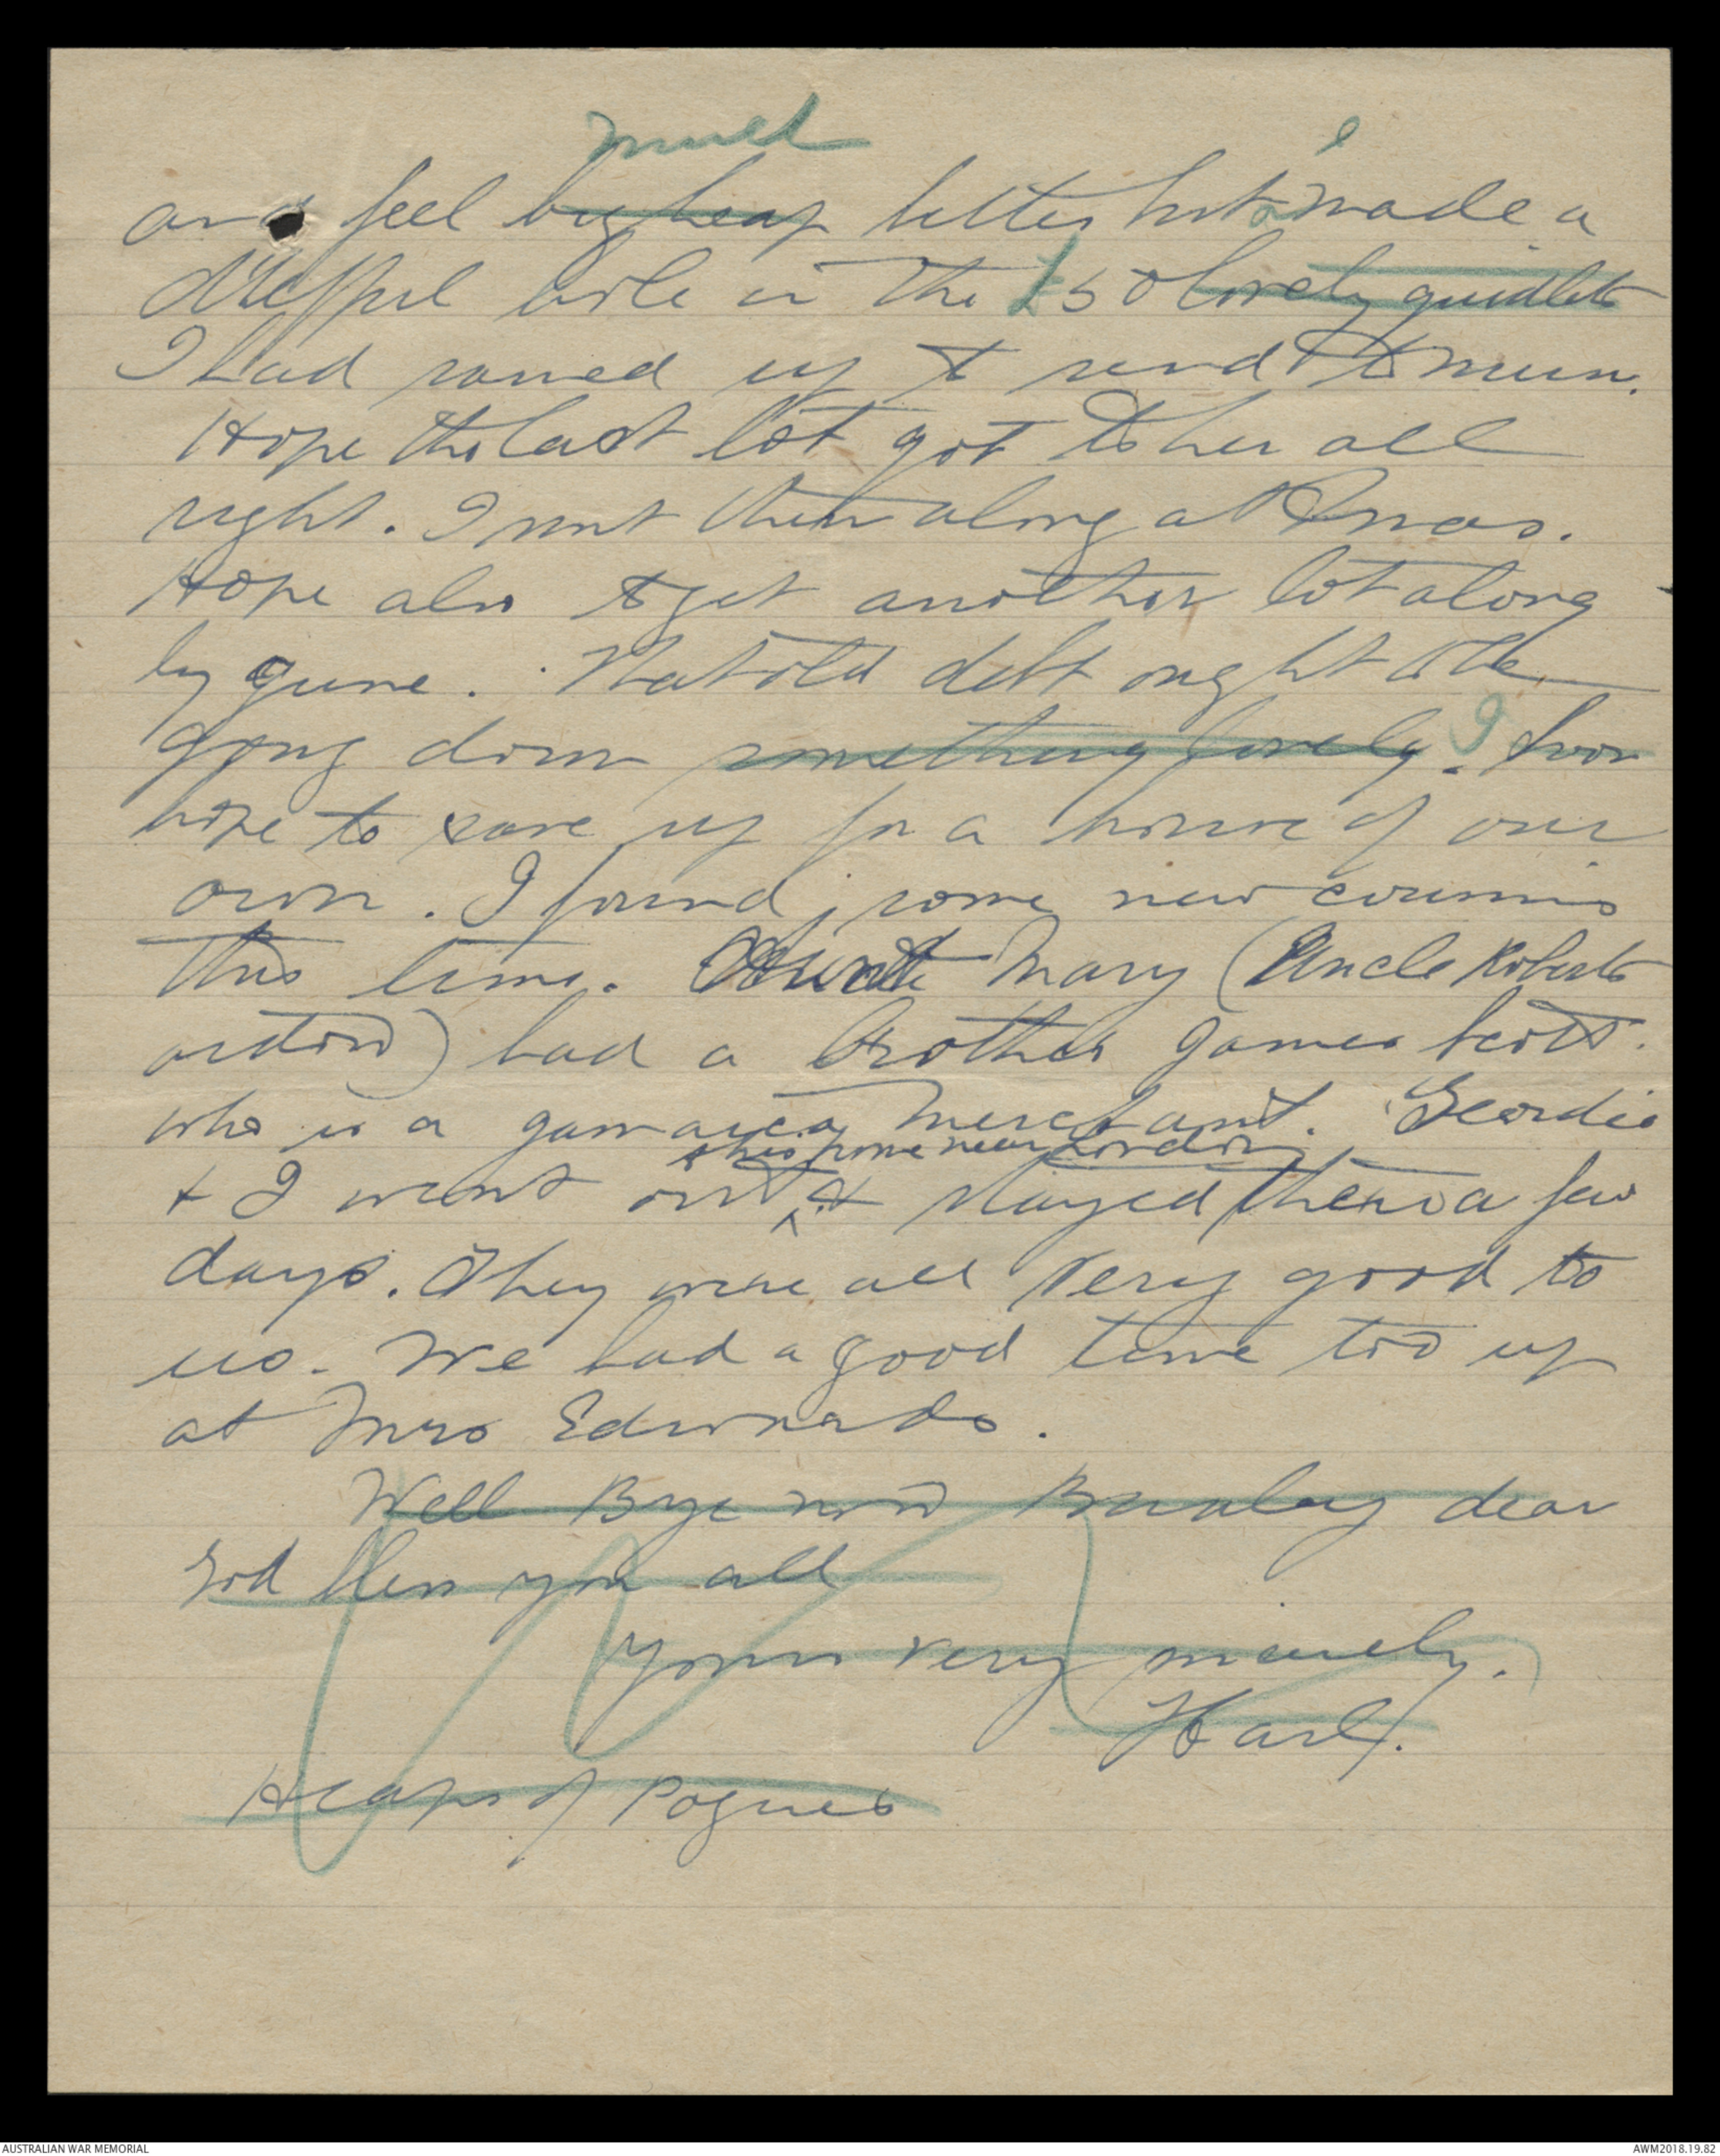 much I
and feel big heap better but made a
drefful hole in the £50 lovely quidlets
I had saved up to send to mum.
Hope the last lot got to her all
right. I sent them along at Xmas.
Hope also to get another lot along
by June. That old debt ought to be
going down something lovely. I soon
hope to save up for a house of our
own. I found some new cousins
this time. Aunt Mary (Uncle Roberts
widow) had a brother James Scott.
who is a Jamaica merchant. Geordie
to his home near London
& I went out & stayed there a few
days. They were all very good to
us. We had a good time too up
at Mrs Edwards.
Well Bye now dear
God bless you all
Yours very sincerely.
Harl.
Heaps of Pogues
AUSTRALIAN WAR MEMORIAL
AWM2018.19.82